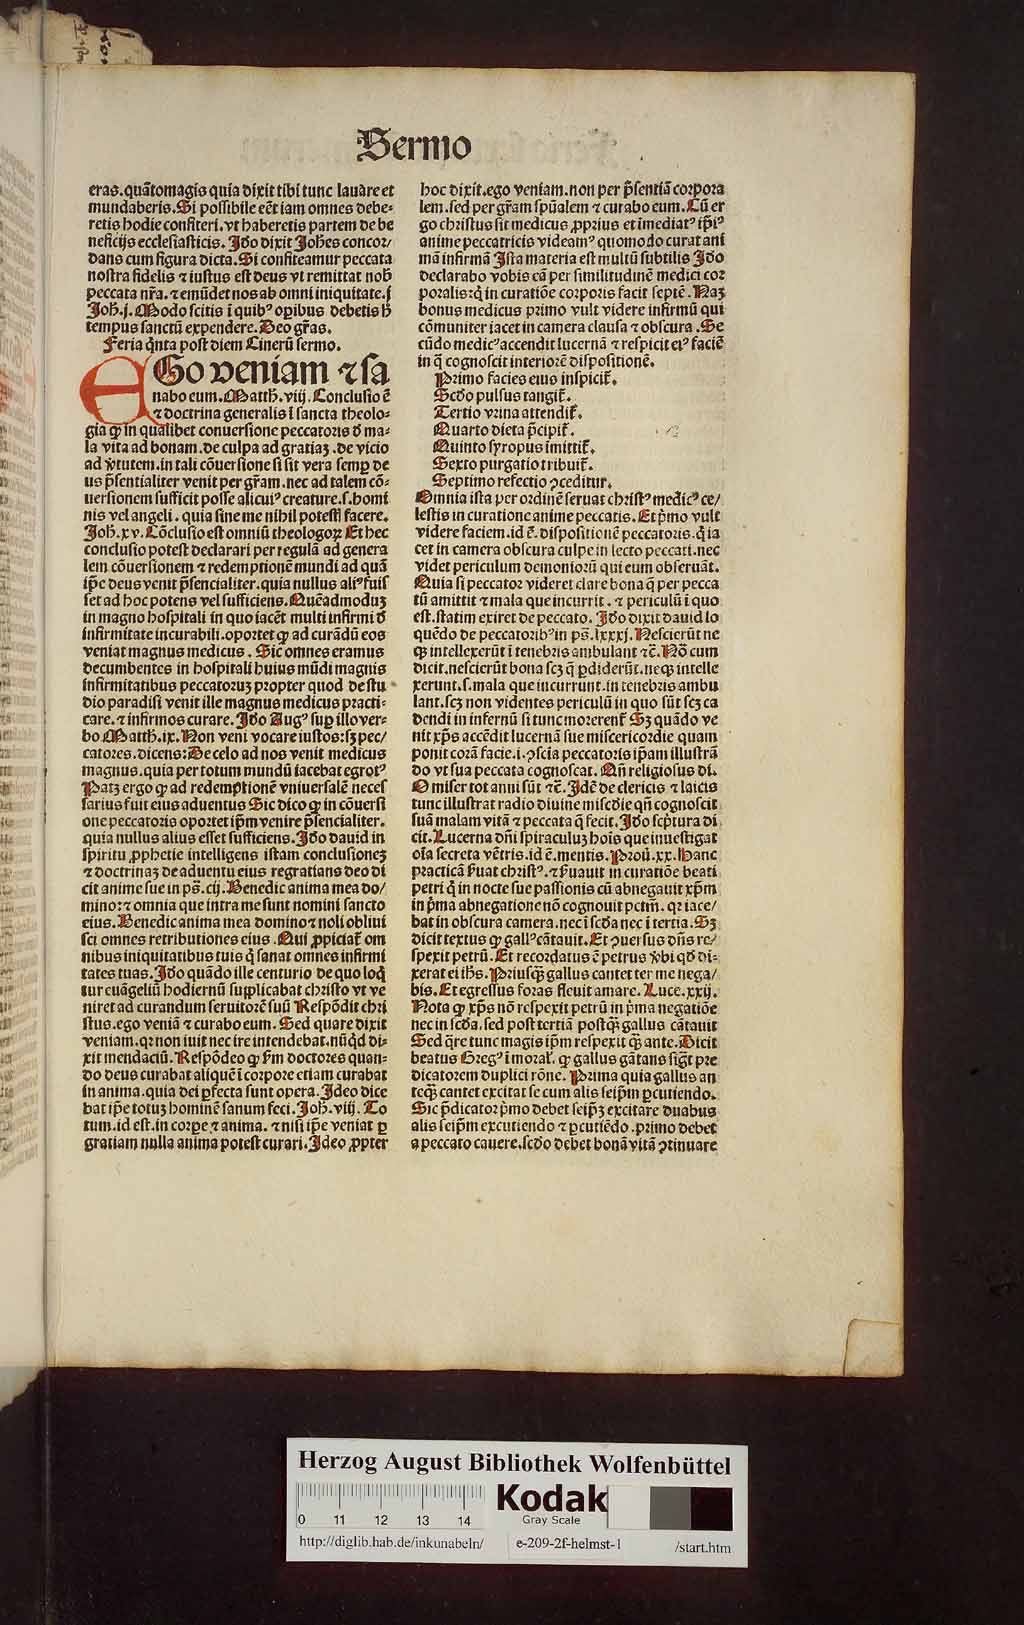 Sermo
eras. quãtomagis quia dixit tibi tunc lauare et
mundaberis. Si possibile eẽt iam omnes debe⸗
retis hodie confiteri. vt haberetis partem de be
neficijs ecclesiasticis. Jdo dixit Johẽs concor/
dans cum figura dicta. Si confiteamur peccata
nostra fidelis ⁊ iustus est deus vt remittat nob̃
peccata nr̃a. ⁊ emũdet nos ab omni iniquitate. j
Joh̃. j. Modo scitis ĩ quibꝰ oꝑibus debetis h̃
tempus sanctũ expendere. Deo gr̃as.
Feria q̃nta post diem Cinerũ sermo.
EGo veniam ⁊ sa
nabo eum. Matth̃. viij. Conclusio ẽ
⁊ doctrina generalis ĩ sancta theolo⸗
gia ꝙ in qualibet conuersione peccatoris đ ma⸗
la vita ad bonam. de culpa ad gratiaꝫ. de vicio
ad v̾tutem. in tali cõuersione si sit vera semꝑ de
us p̃sentialiter venit per gr̃am. nec ad talem cõ⸗
uersionem sufficit posse alicuiꝰ creature. s. homi
nis vel angeli. quia sine me nihil potestĩ facere.
Joh̃. xv. Cõclusio est omniũ theologoꝝ Et hec
conclusio potest declarari per regulã ad genera
lem cõuersionem ⁊ redemptionẽ mundi ad quã
ip̃e deus venit p̃sencialiter. quia nullus aliꝰ fuis
set ad hoc potens vel sufficiens. Quẽadmoduꝫ
in magno hospitali in quo iacẽt multi infirmi đ
infirmitate incurabili. oportet ꝙ ad curãdũ eos
veniat magnus medicus. Sic omnes eramus
decumbentes in hospitali huius mũdi magnis
infirmitatibus peccatoruꝫ propter quod de stu
dio paradisi venit ille magnus medicus practi⸗
care. ⁊ infirmos curare. Jdo Augꝰ suꝑ illo ver⸗
bo Matth̃. ix. Non veni vocare iustos: sꝫ pec/
catores. dicens: De celo ad nos venit medicus
magnus. quia per totum mundũ iacebat egrotꝰ
Patꝫ ergo ꝙ ad redemptionẽ vniuersalẽ neces
sarius fuit eius aduentus Sic dico ꝙ in cõuersi
one peccatoris oportet ip̃m venire p̃sencialiter.
quia nullus alius esset sufficiens. Jdo dauid in
spiritu ꝓphetie intelligens istam conclusioneꝫ
⁊ doctrinaꝫ de aduentu eius regratians deo di
cit anime sue in ps̃. cij. Benedic anima mea do/
mino: ⁊ omnia que intra me sunt nomini sancto
eius. Benedic anima mea domino ⁊ noli obliui
sci omnes retributiones eius. Qui ꝓpiciat̃ om
nibus iniquitatibus tuis q̃ sanat omnes infirmi
tates tuas. Jdo quãdo ille centurio de quo loq̃
tur euãgeliũ hodiernũ supplicabat christo vt ve
niret ad curandum seruitorẽ suũ Respõdit chri
stus. ego veniã ⁊ curabo eum. Sed quare dixit
veniam. qꝛ non iuit nec ire intendebat. nũq̃d di⸗
xit mendaciũ. Respõdeo ꝙ s̃m doctores quan⸗
do deus curabat aliquẽ ĩ corpore etiam curabat
in anima. quia dei ꝑfecta sunt opera. Jdeo dice
bat ip̃e totuꝫ hominẽ sanum feci. Joh̃. viij. To
tum. id est. in corꝑe ⁊ anima. ⁊ nisi ip̃e veniat ꝑ
gratiam nulla anima potest curari. Jdeo ꝓpter
hoc dixit. ego veniam. non per p̃sentiã corpora
lem. sed per gr̃am sp̃ualem ⁊ curabo eum. Cũ er
go christus sit medicus ꝓprius et ĩmediatꝰ ip̃iꝰ
anime peccatricis videamꝰ quomodo curat ani
mã infirmã Jsta materia est multũ subtilis Jdo
declarabo vobis eã per similitudinẽ medici cor
poralis: q̃ in curatiõe corporis facit septẽ. Naꝫ
bonus medicus primo vult videre infirmũ qui
cõmuniter iacet in camera clausa ⁊ obscura. Se
cũdo medicꝰ accendit lucernã ⁊ respicit eiꝰ faciẽ
in q̃ cognoscit interiorẽ dispositionẽ.
Primo facies eius inspicit̃.
Scđo pulsus tangit̃.
Tertio vrina attendit̃.
Quarto dieta p̃cipit̃.
Quinto syropus ĩmittit̃.
Sexto purgatio tribuit̃.
Septimo refectio ꝯceditur.
Omnia ista per ordinẽ seruat christꝰ medicꝰ ce/
lestis in curatione anime peccatis. Et p̃mo vult
videre faciem. id ẽ. dispositionẽ peccatoris. q̃ ia
cet in camera obscura culpe in lecto peccati. nec
videt periculum demoniorũ qui eum obseruãt.
Quia si peccator videret clare bona q̃ per pecca
tũ amittit ⁊ mala que incurrit. ⁊ periculũ ĩ quo
est. statim exiret de peccato. Jdo dixit dauid lo
quẽdo de peccatoribꝰ in ps̃. lxxxj. Nescierũt ne
qꝫ intellexerũt ĩ tenebris ambulant ⁊c̃. Nõ cum
dicit. nescierũt bona scꝫ q̃ ꝑdiderũt. neqꝫ intelle
xerunt. s. mala que incurrunt. in tenebris ambu
lant. scꝫ non videntes periculũ in quo sũt scꝫ ca
dendi in infernũ si tunc morerent̃ Sꝫ quãdo ve
nit xp̃s accẽdit lucernã sue misericordie quam
ponit corã facie. i. ꝯscia peccatoris ip̃am illustrã
do vt sua peccata cognoscat. Qñ religiosus di.
O miser tot anni sũt ⁊c̃. Jdẽ de clericis ⁊ laicis
tunc illustrat radio diuine misc̃die qñ cognoscit
suã malam vitã ⁊ peccata q̃ fecit. Jdo scp̃tura di
cit. Lucerna dñi spiraculuꝫ hoĩs que inuestigat
oĩa secreta vẽtris. id ẽ. mentis. Prou̾. xx. Hanc
practicã s̾uat christꝰ. ⁊ s̾uauit in curatiõe beati
petri q̃ in nocte sue passionis cũ abnegauit xp̃m
in p̃ma abnegatione nõ cognouit pctm̃. qꝛ iace/
bat in obscura camera. nec ĩ scđa nec ĩ tertia. Sꝫ
dicit textus ꝙ gallꝰ cãtauit. Et ꝯuersus dñs re⸗/
spexit petrũ. Et recordatus ẽ petrus v̾bi qđ di⸗
xerat ei ih̃s. Priusq̃ꝫ gallus cantet ter me nega/
bis. Et egressus foras fleuit amare. Luce. xxij.
Nota ꝙ xp̃s nõ respexit petrũ in p̃ma negatiõe
nec in scđa. sed post tertiã postq̃ꝫ gallus cãtauit
Sed q̃re tunc magis ip̃m respexit q̃ꝫ ante. Dicit
beatus Gregꝰ ĩ moral̃. ꝙ gallus gãtans sigt̃ pre
dicatorem duplici rõne. Prima quia gallus an
teq̃ꝫ cantet excitat se cum alis seip̃m ꝑcutiendo.
Sic p̃dicator p̃mo debet seip̃ꝫ excitare duabus
alis seip̃m excutiendo ⁊ ꝑcutiẽdo. primo debet
a peccato cauere. scđo debet bonã vitã ꝯtinuare
Herzog August Bibliothek Wolfenbüttel
0 11 12 13 14
Kodak
Gray Scale
http://diglib.hab.de/inkunabeln/ e-209-2f-helmst-1 /start.htm